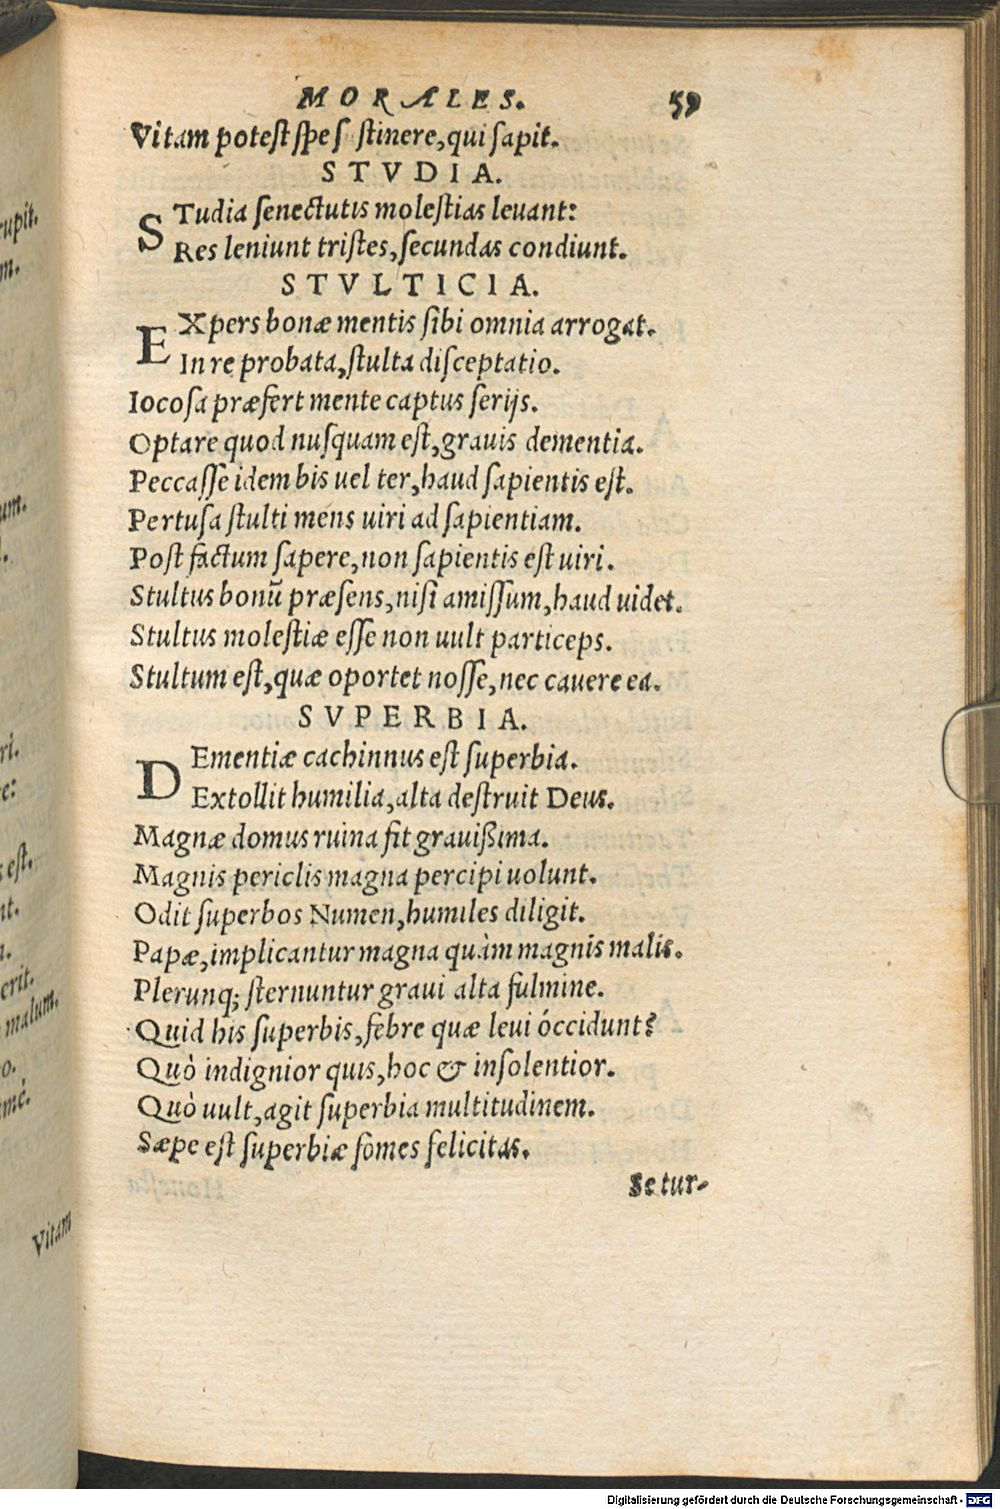 MORALES. 59
Vitam potest spe s stinere, qui sapit.
STVDIA.
STudia senectutis molestias leuant:
Res leniunt tristes, secundas condiunt.
STVLTICIA.
EXpers bonæ mentis sibi omnia arrogat.
In re probata, stulta disceptatio.
Iocosa præfert mente captus serijs.
Optare quod nusquam est, grauis dementia.
Peccasse idem bis uel ter, haud sapientis est.
Pertusa stulti mens uiri ad sapientiam.
Post factum sapere, non sapientis est uiri.
Stultus bonū præsens, nisi amissum, haud uidet.
Stultus molestiæ esse non uult particeps.
Stultum est, quæ oportet nosse, nec cauere ea.
SVPERBIA.
DEmentiæ cachinnus est superbia.
Extollit humilia, alta destruit Deus.
Magnæ domus ruina fit grauißima.
Magnis periclis magna percipi uolunt.
Odit superbos Numen, humiles diligit.
Papæ, implicantur magna quàm magnis malis.
Plerunq; sternuntur graui alta fulmine.
Quid his superbis, febre quæ leui óccidunt?
Quò indignior quis, hoc & insolentior.
Quò uult, agit superbia multitudinem.
Sæpe est superbiæ fomes felicitas.
Se tur-
rupit.
m.
um.
ri.
e:
s est.
nt.
erit.
malum.
o.
Vitam
Digitalisierung gefördert durch die Deutsche Forschungsgemeinschaft - DFG